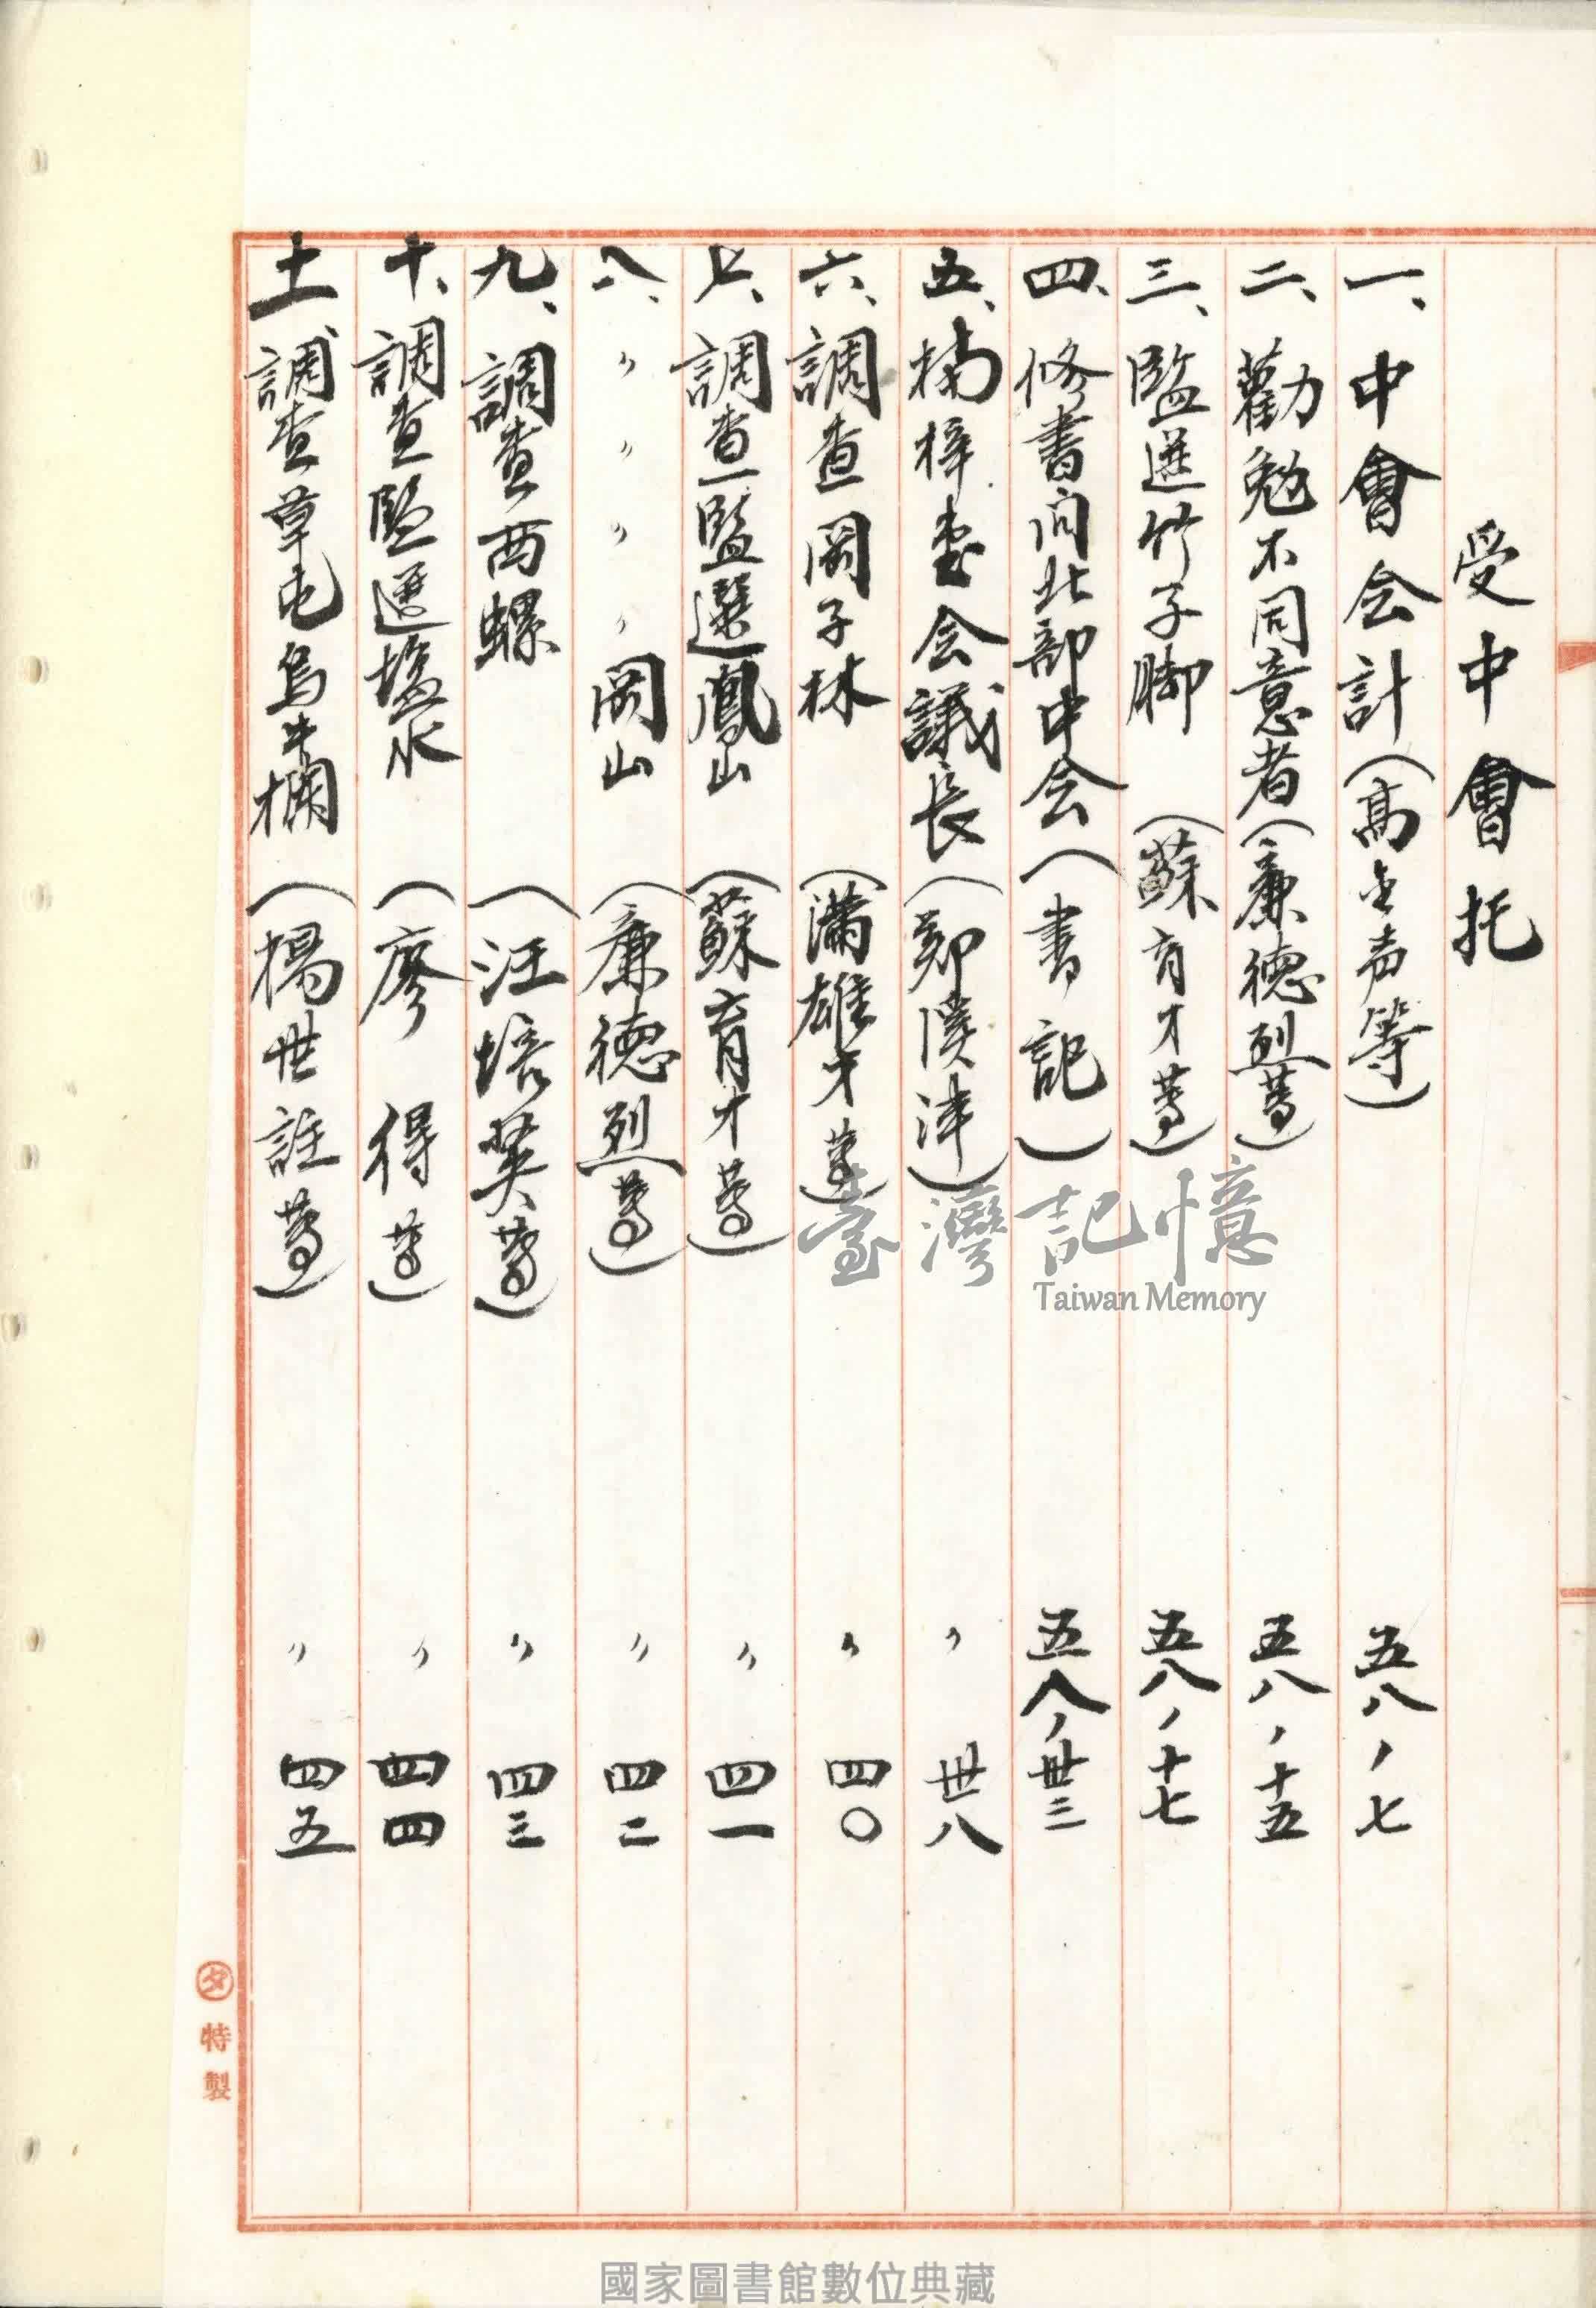 受中會托
一、中會会計(高金声等) 五八、七
二、勸勉不同意者(廉德烈等) 五八、十五
三、監選竹子脚(蘇育才等) 五八、十七
四、修書问北部中会(書記) 五八、卅三
五、楠梓堂会議長(鄭溪津) 〃 卅八
六、調查岡子林(滿雄才等) 〃 四〇
七、調查監選鳳山(蘇育才等) 〃 四一
八、〃〃〃〃岡山(廉德烈等) 〃 四二
九、調查西螺(汪培英等) 〃 四三
十、調查監選塩水(廖得等) 〃 四四
十一、調查草屯烏牛欄(楊世註等) 〃 四五
臺灣記憶
Taiwan Memory
タ特製
國家圖書館數位典藏